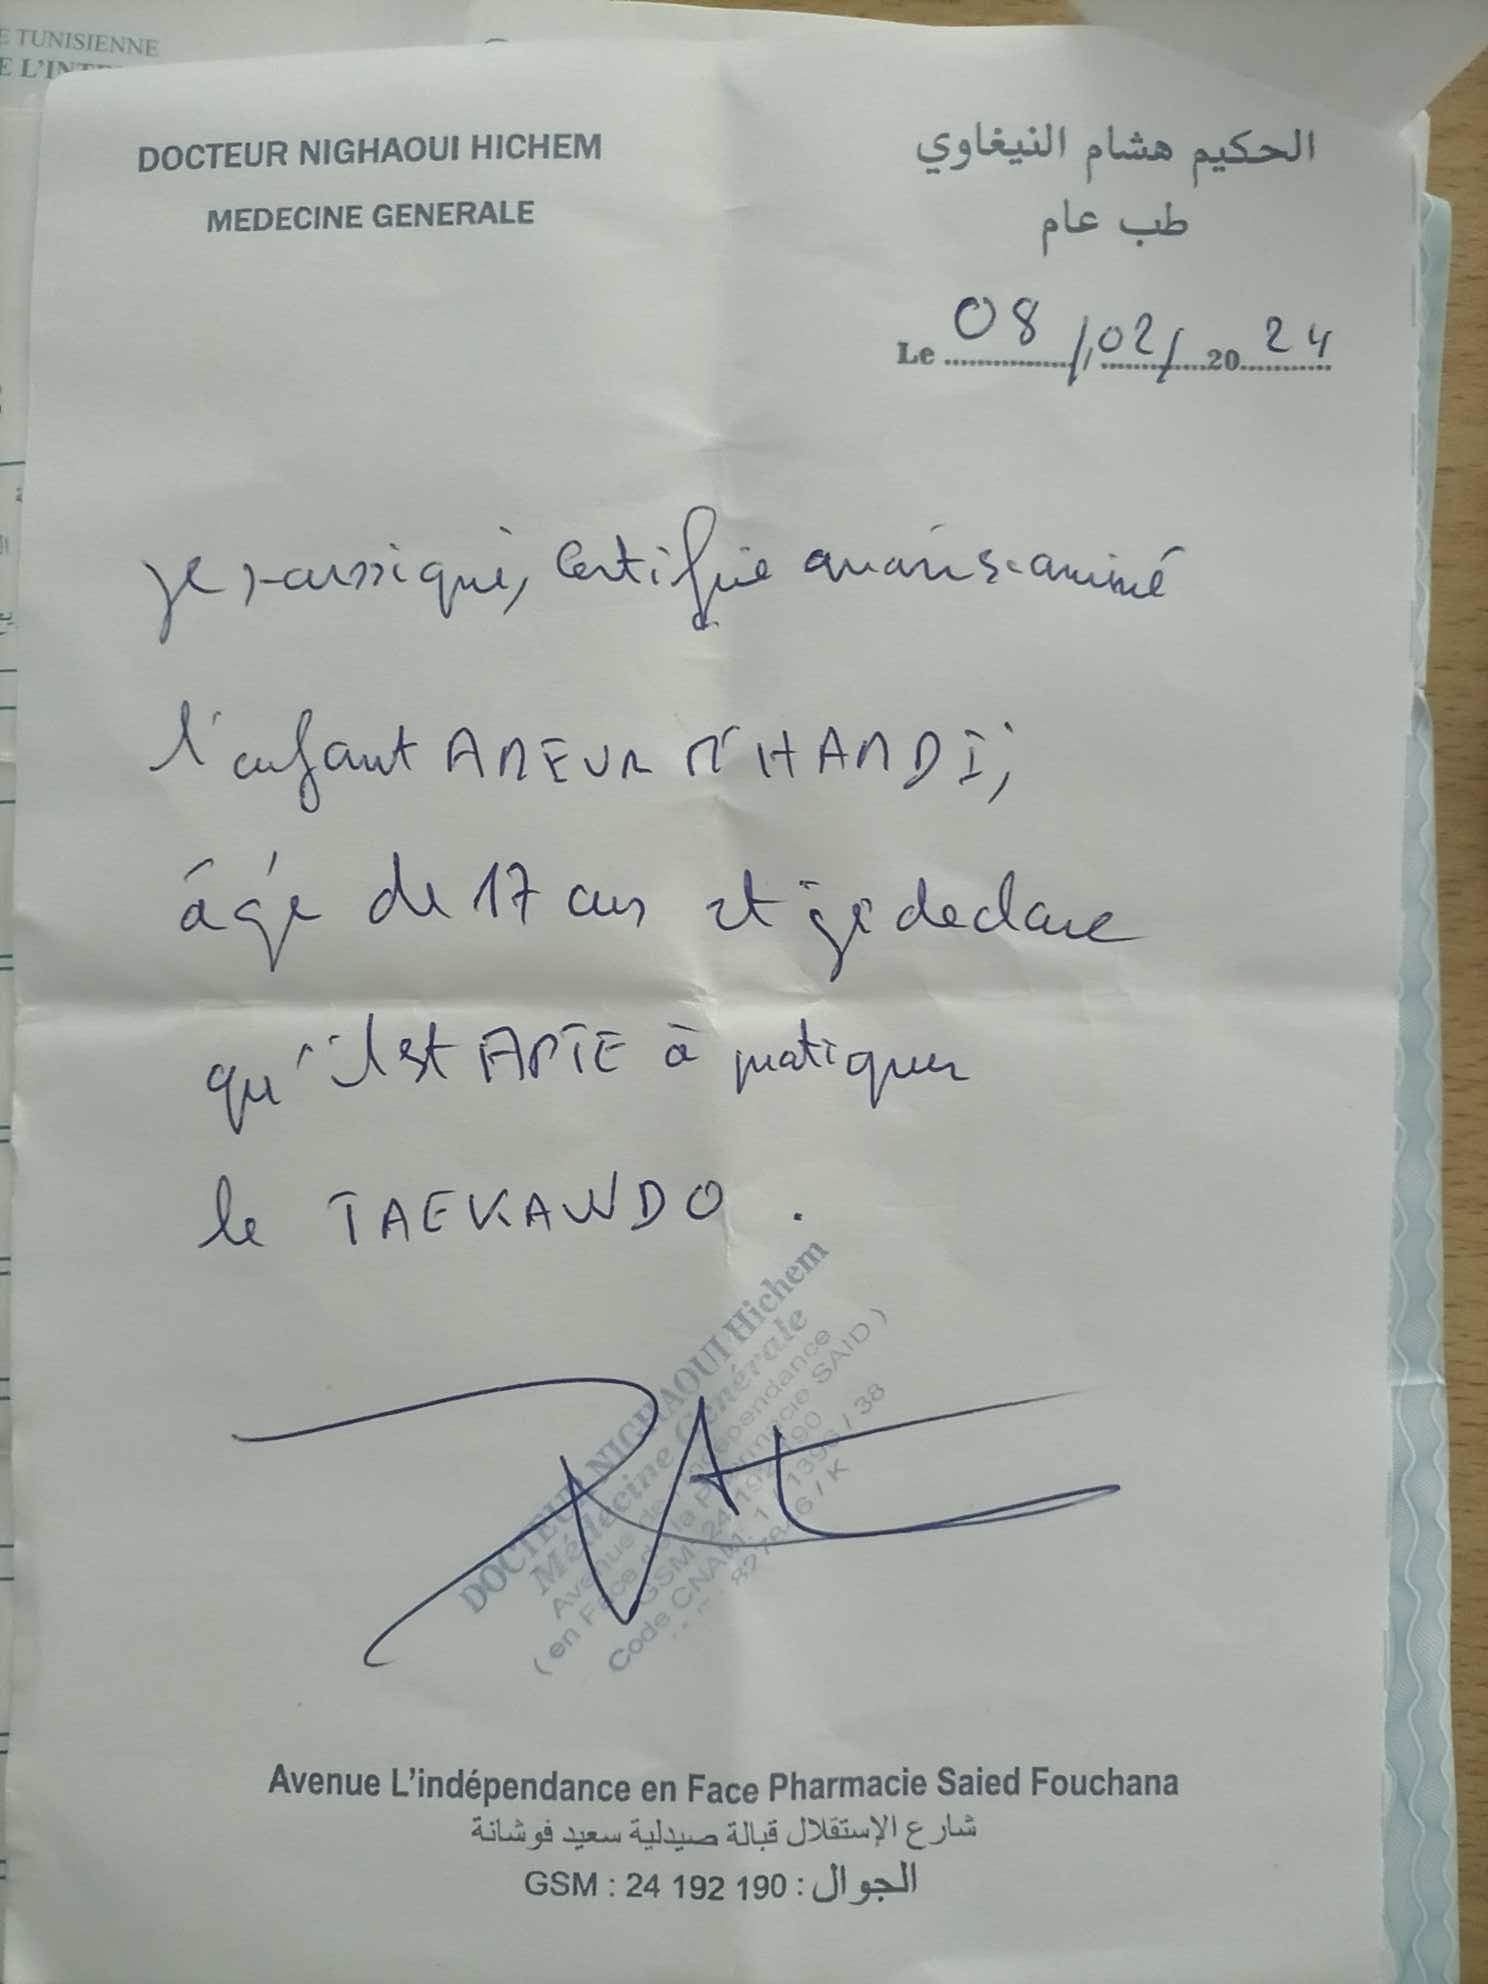 E TUNISIENNE
E L'INT
DOCTEUR NIGHAOUI HICHEM
MEDECINE GENERALE
الحكيم هشام النيغاوي
طب عام
Le 08/02/2024
je soussigné, certifie avoir examiné
l'enfant AMEUR M'HAMDI,
âgé de 17 ans et je declare
qu'il est APTE à pratiquer
le TAEKAWDO.
DOCTEUR NIGHAOUI Hichem
Médecine Générale
Avenue de l'indépendance
(en Face de la Pharmacie SAID)
GSM: 24 192 190
Code CNAM: 1 / 1396 / 38
Avenue L'indépendance en Face Pharmacie Saied Fouchana
شارع الإستقلال قبالة صيدلية سعيد فوشانة
GSM : 24 192 190 : الجوال